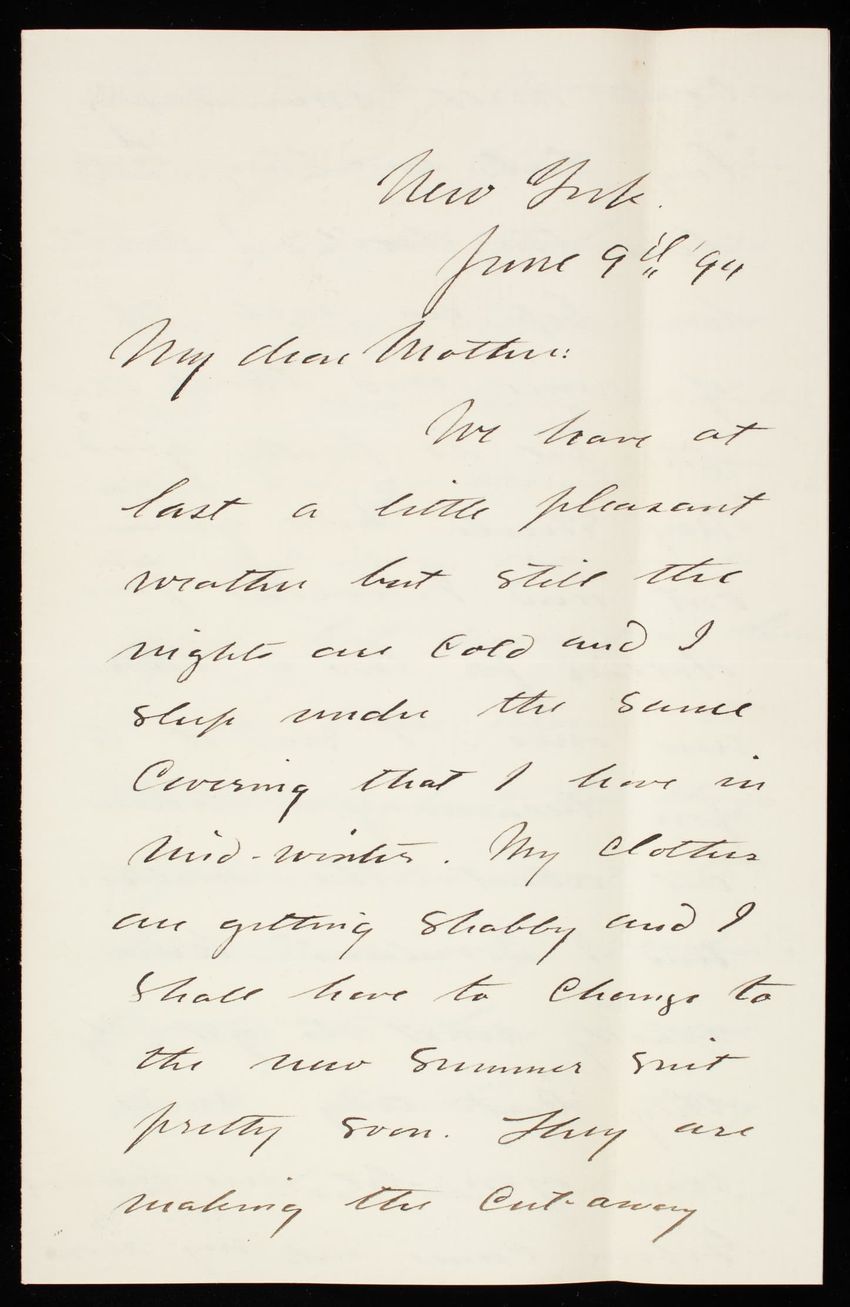 New York.
June 9th '94
My dear Mother:
We have at
last a little pleasant
weather but still the
nights are cold and I
sleep under the same
Covering that I have in
Mid-winter. My Clothes
are getting shabby and I
shall have to Change to
the new summer suit
pretty soon. They are
making the Cut-away